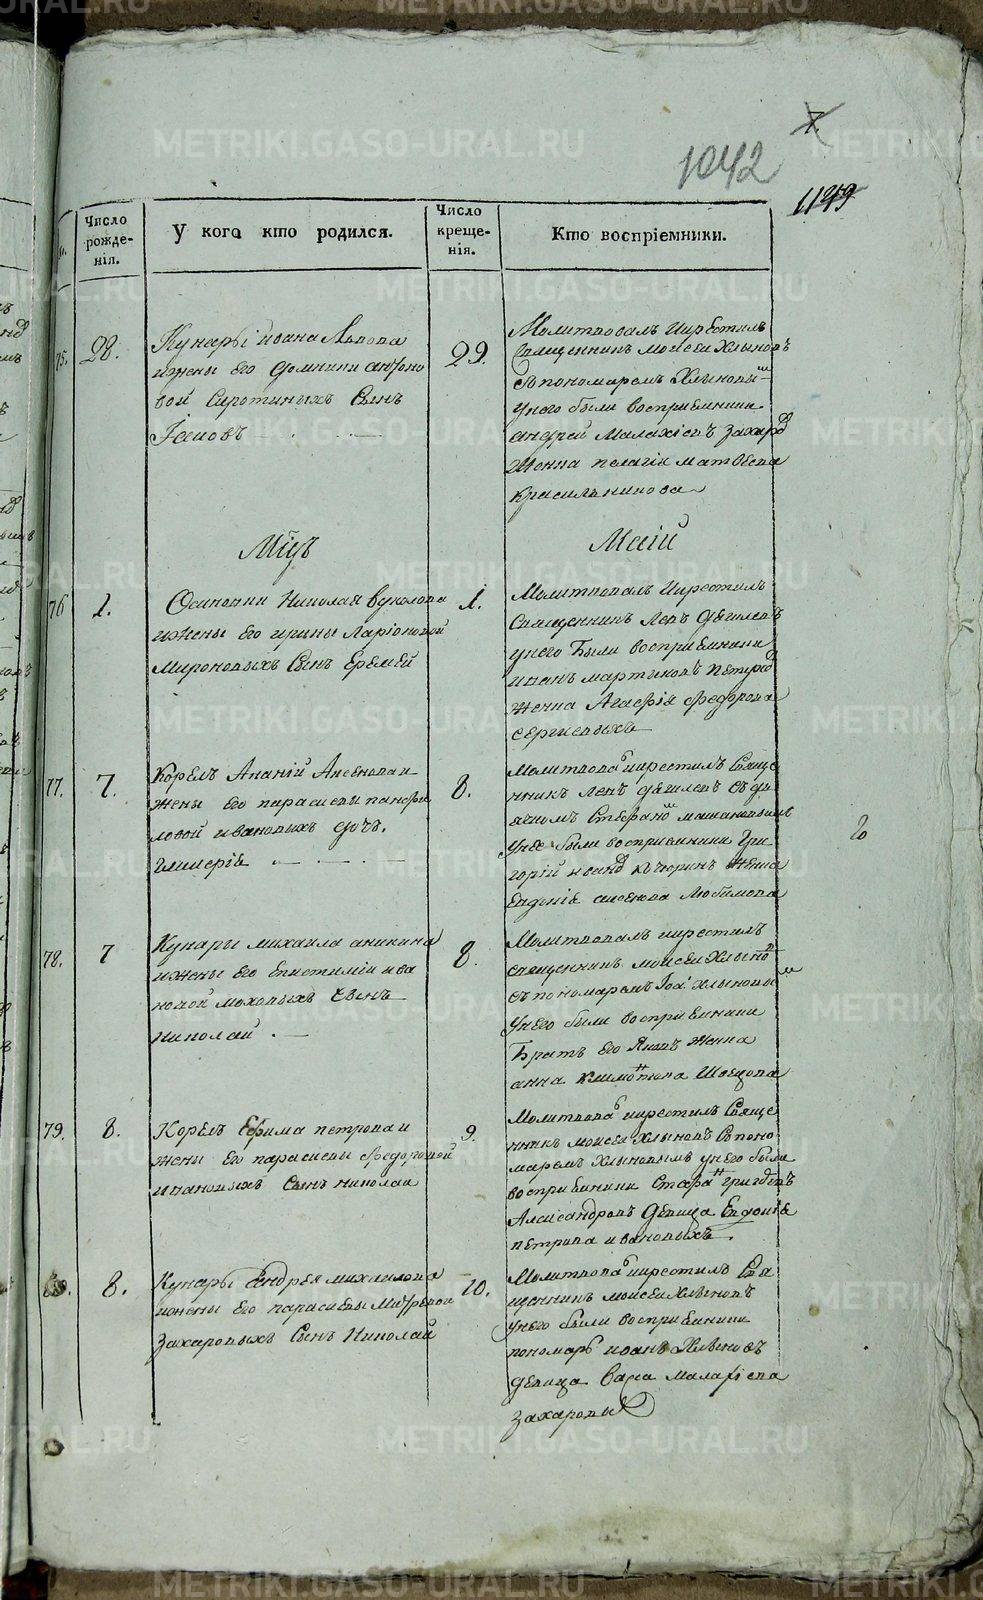 7.
1042
1149
Число рожде-нія.
У кого кто родился.
Число креще-нія.
Кто воспріемники.
75.
28.
Кунары Ивана Львова
ижены его Домники антоно
вой Сиротиныхъ Сынъ
Іаковъ
29.
Молитвовалъ икрестилъ
Священникъ моисей Хлыновъ
съ пономаремъ Хлыновым
унего были восприемники
андрей Малахіевъ Захаров
Женка пелагія матвеева
красильникова
Мцъ Маій
76
1.
Осиновки Николая вуколова
ижены его ирины Ларіоновой
Мироновыхъ Сынъ Еремей
1.
Молитвовалъ икрестилъ
Священникъ Левъ
унего Были восприемники
иванъ мартиновъ Петров
женка Агафія федорова
сергиевыхъ
77.
7.
Корелъ Ананій Аксенова и
жены его параскевы панфи
ловой ивановыхъ дочь
гликерія
8.
Молитвова икрестилъ Свяще
нникъ Левъ съ дь
ячкомъ Стефаном машановымъ
унее были восприемники Гри
горій иванов качюринъ женка
Евдокія аксенова Любимова
78.
7
Кунары михаила аникина
ижены его Епистиміи ива
новой моховыхъ Сынъ
николай
8.
Молитвовалъ икрестилъ
священникъ моисей Хлынов
съ пономаремъ Іоа: хлыновым
унего были восприемники
Братъ его Яковъ женка
анна климонтова Швецова
79.
8.
Корелъ Ефима петрова и
жены Его параскевы федоровой
ивановыхъ Сынъ николай
9.
Молитвова икрестилъ Свяще
нникъ моисей хлыновъ съ поно
маремъ Хлыновымъ унего были
восприемники
Александровъ девица Евдокія
петрова ивановыхъ.
80.
8.
Кунары Андрея михаилова
ижены Его параскевы Митревой
Захаровыхъ Сынъ Николай
10.
Молитвова икрестилъ Свя
щенникъ моисей Хлыновъ
унего были восприемники
пономарь иоанъ Хлыновъ
девица Васса малафіева
Захаровых
METRIKI.GASO-URAL.RU